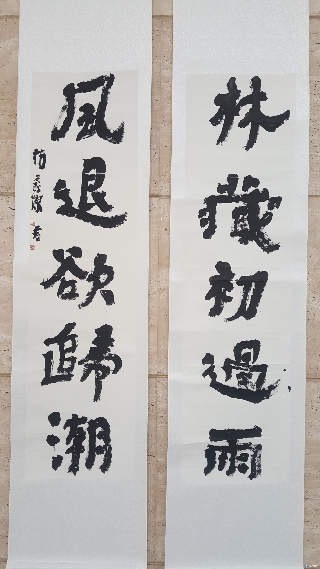 林藏初過雨
風退欲歸潮